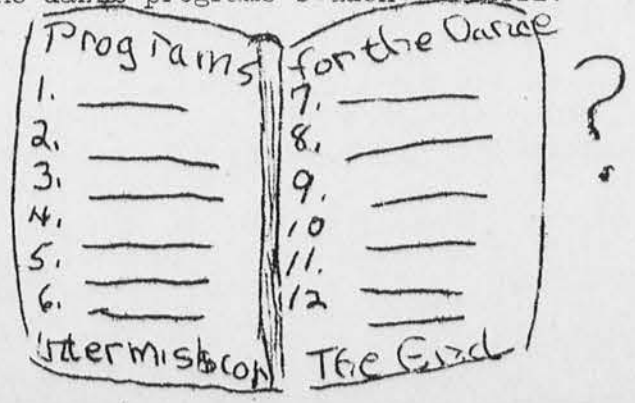 Programs
1.
2.
3.
4.
5.
6.
Intermission
for the Dance
7.
8.
9.
10
11.
12
The End
?